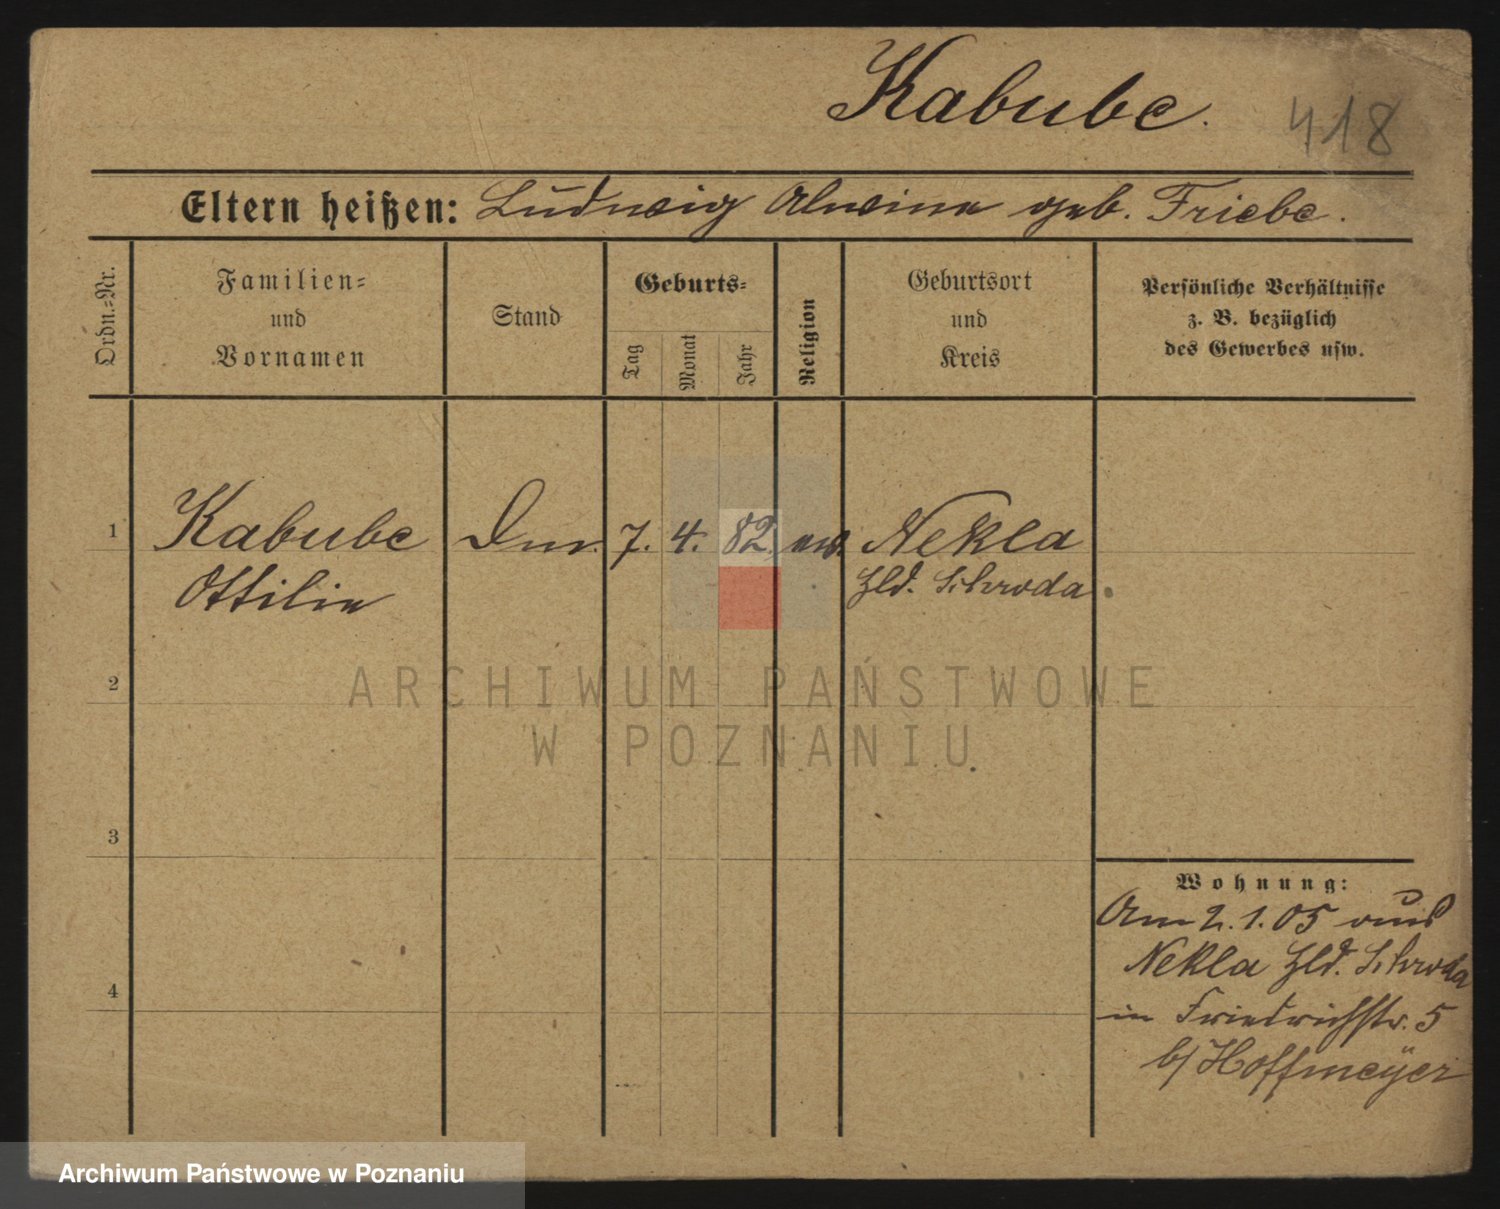 Kabube.
418
Eltern heißen: Ludwig Alwine geb. Friebe.
Ordn.-Nr.
Familien-
und
Vornamen
Stand
Geburts-
Tag
Monat
Jahr
Religion
Geburtsort
und
Kreis
Persönliche Verhältnisse
z. B. bezüglich
des Gewerbes usw.
1 Kabube 7. 4. 82. Nekla
Ottilie Hld. Schroda
2
ARCHIWUM PAŃSTWOWE
W POZNANIU
3
4
Wohnung:
Am 2.1.05 aus
Nekla Hld. Schroda
in Friedrichstr. 5
b/ Hoffmeÿer
Archiwum Państwowe w Poznaniu